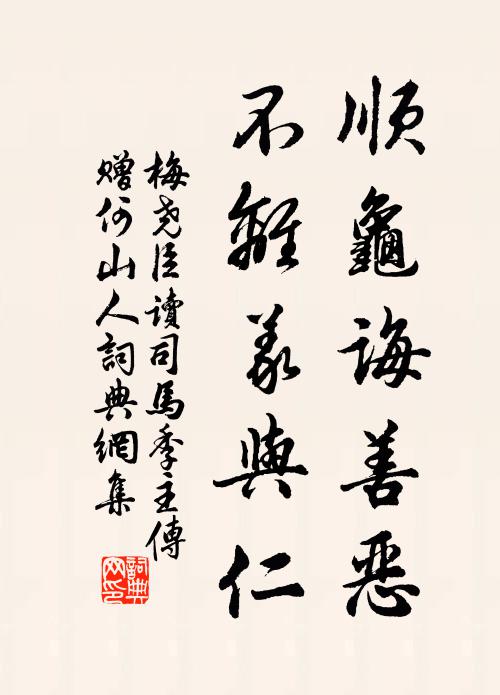 順龜誨善惡
不離義與仁
梅堯臣讀司馬季主傳
贈何山人詞典網集
詞典
网印